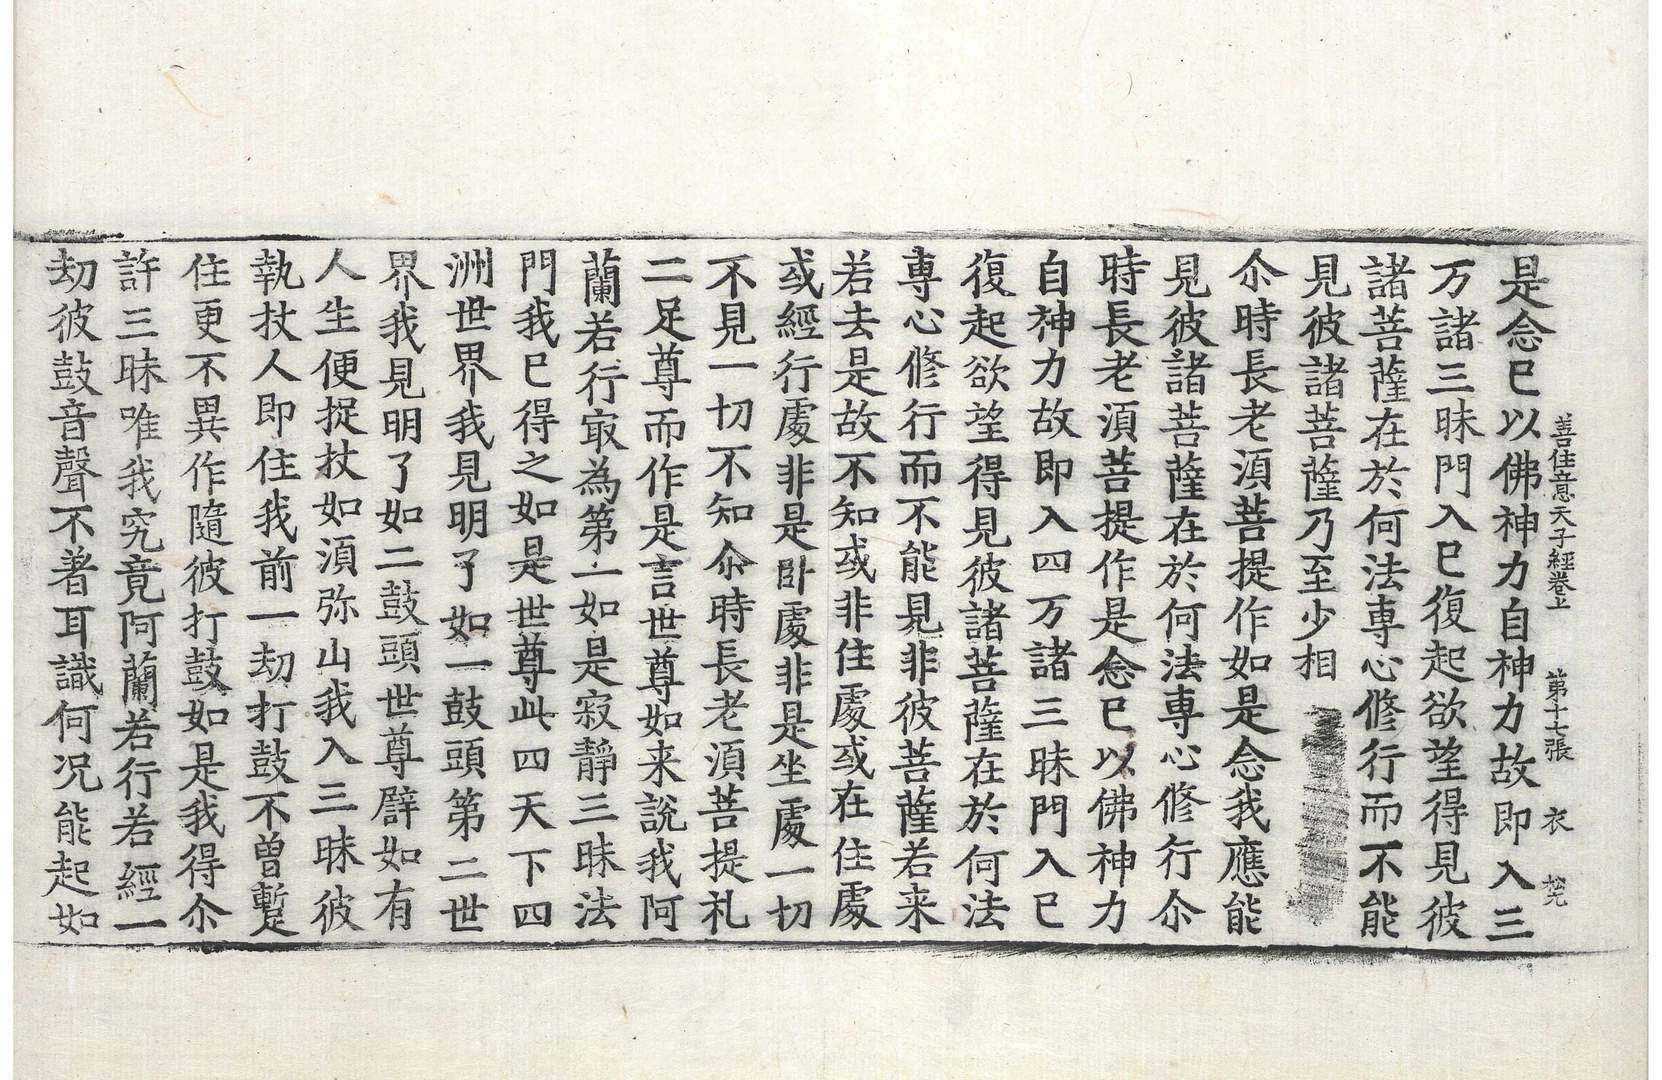 善住意天子經卷上　第十七張　衣
是念已以佛神力自神力故即入三
万諸三昧門入已復起欲望得見彼
諸菩薩在於何法専心修行而不能
見彼諸菩薩乃至少相
尒時長老湏菩提作如是念我應能
見彼諸菩薩在於何法専心修行尒
時長老湏菩提作是念已以佛神力
自神力故即入四万諸三昧門入已
復起欲望得見彼諸菩薩在於何法
専心修行而不能見非彼菩薩若来
若去是故不知或非住處或在住處
或經行處非是卧處非是坐處一切
不見一切不知尒時長老湏菩提礼
二足尊而作是言世尊如来說我阿
蘭若行㝡為第一如是寂靜三昧法
門我已得之如是世尊此四天下四
洲世界我見明了如一鼓頭第二世
界我見明了如二鼓頭世尊譬如有
人生便捉杖如湏弥山我入三昧彼
執杖人即住我前一劫打鼓不曽暫
住更不異作隨彼打鼓如是我得尒
許三昧唯我究竟阿蘭若行若經一
劫彼鼓音聲不著耳識何况能起如